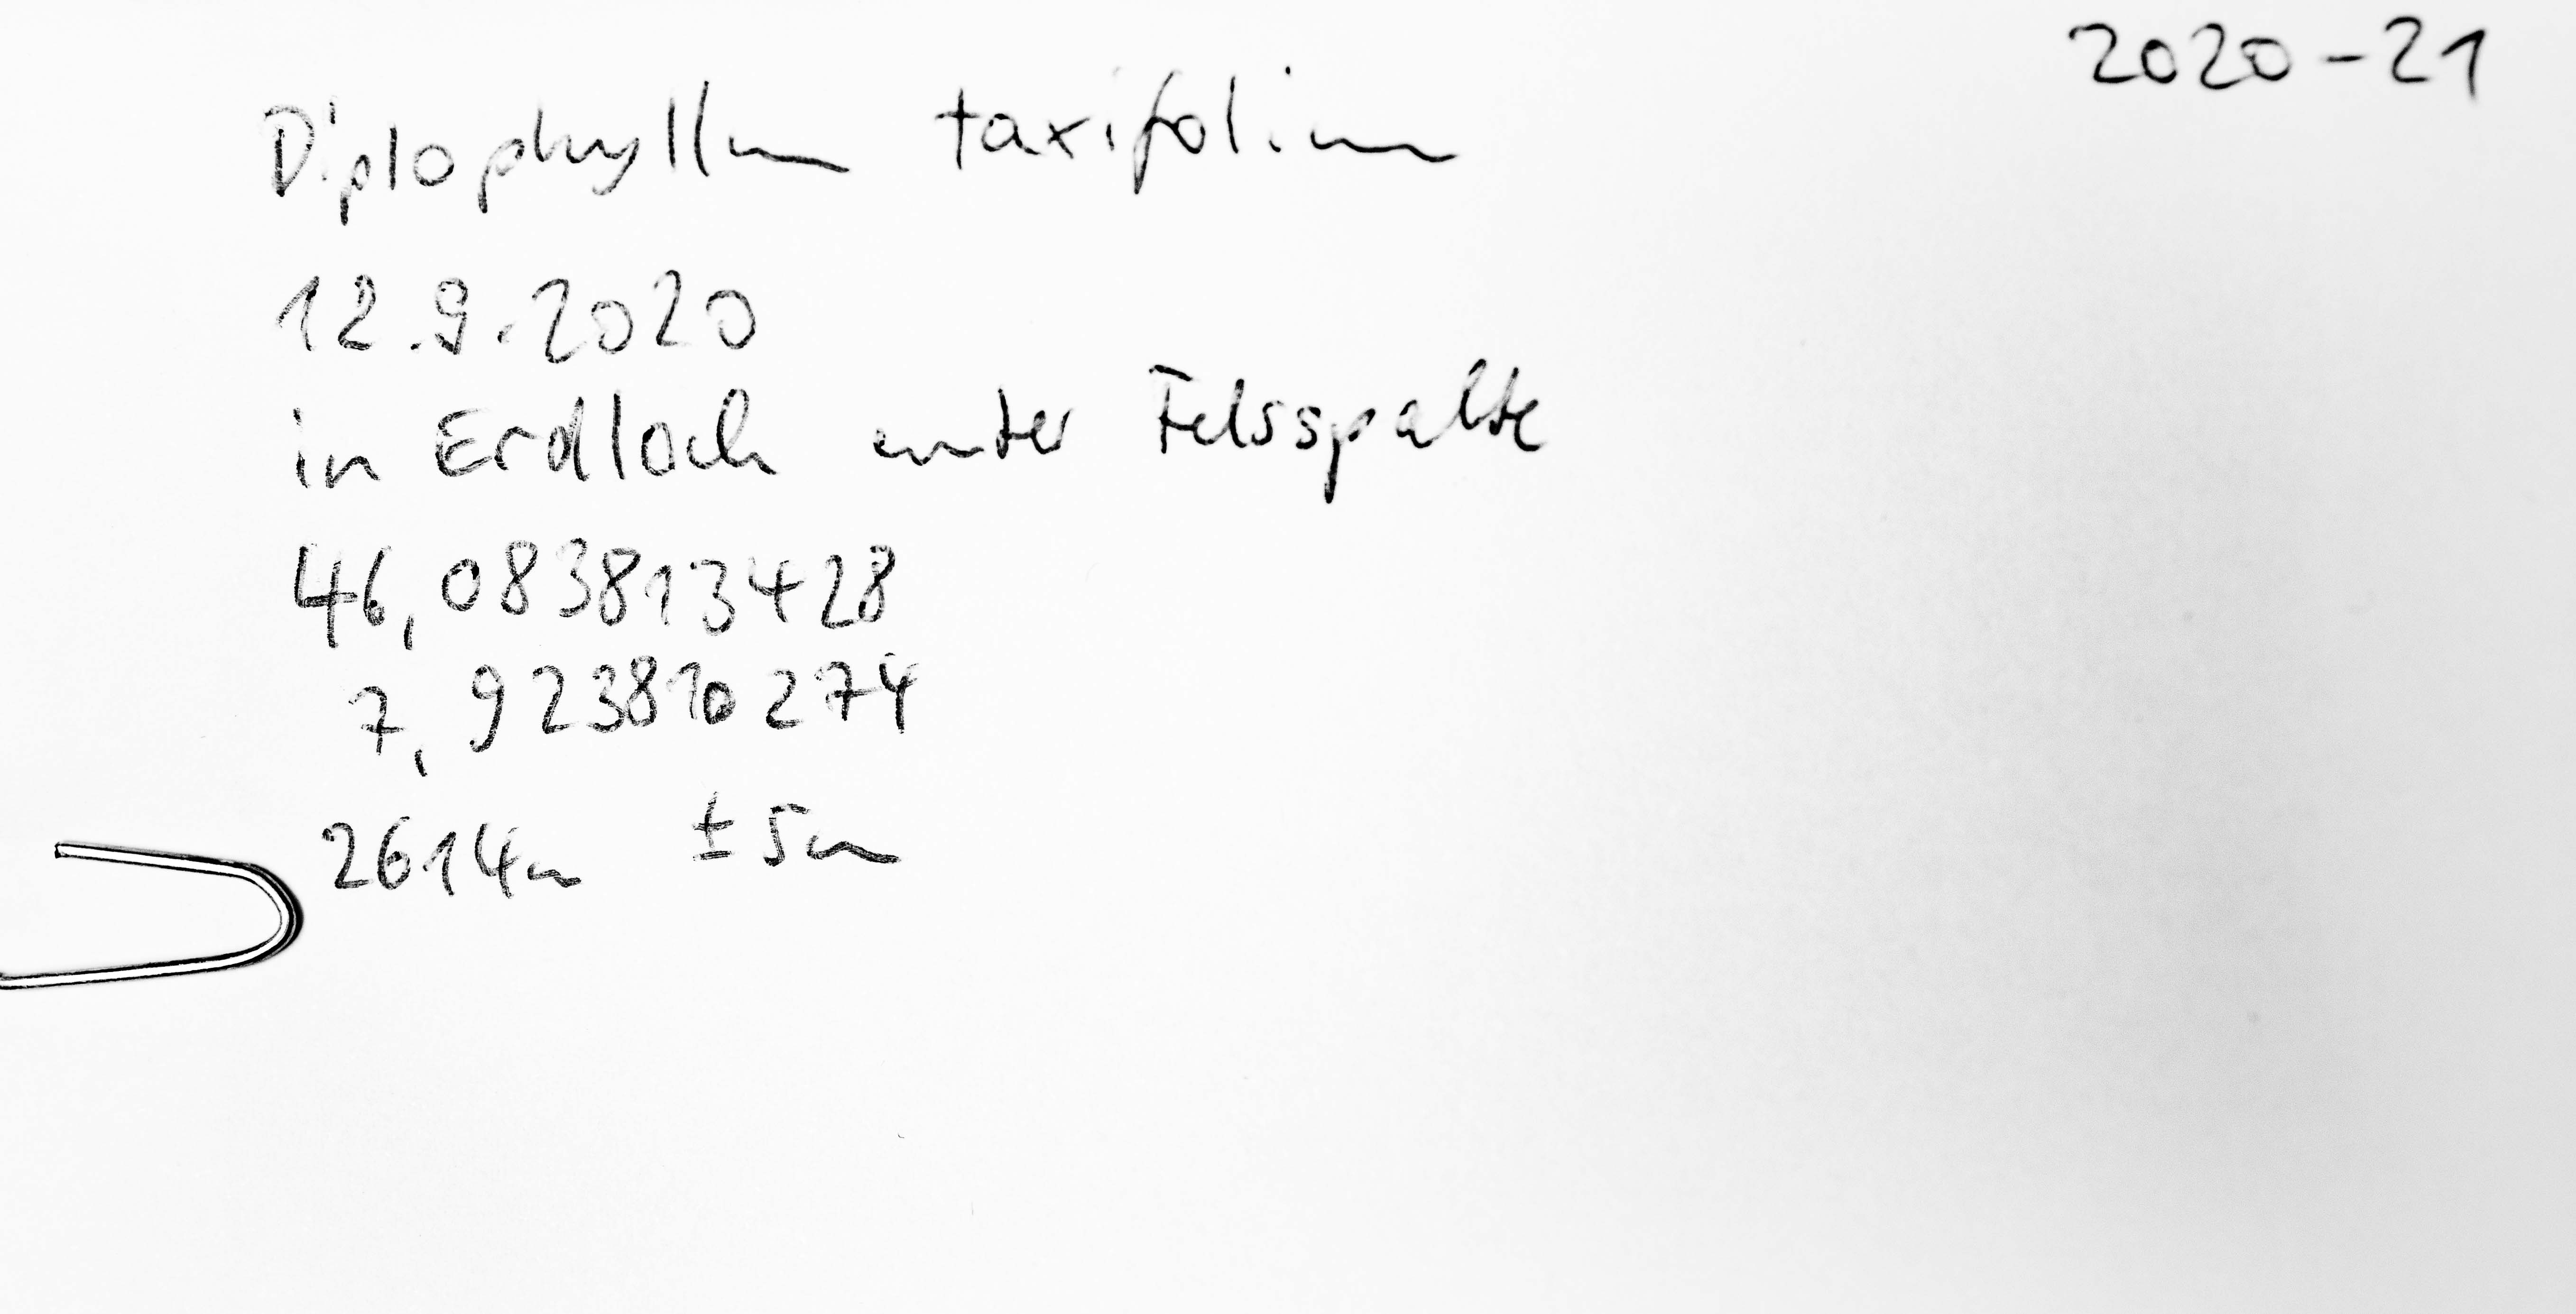 2020-21
Diplophyllum taxifolium
12.9.2020
in Erdloch unter Felsspalte
46,083813428
7,923810274
2614m ±5m